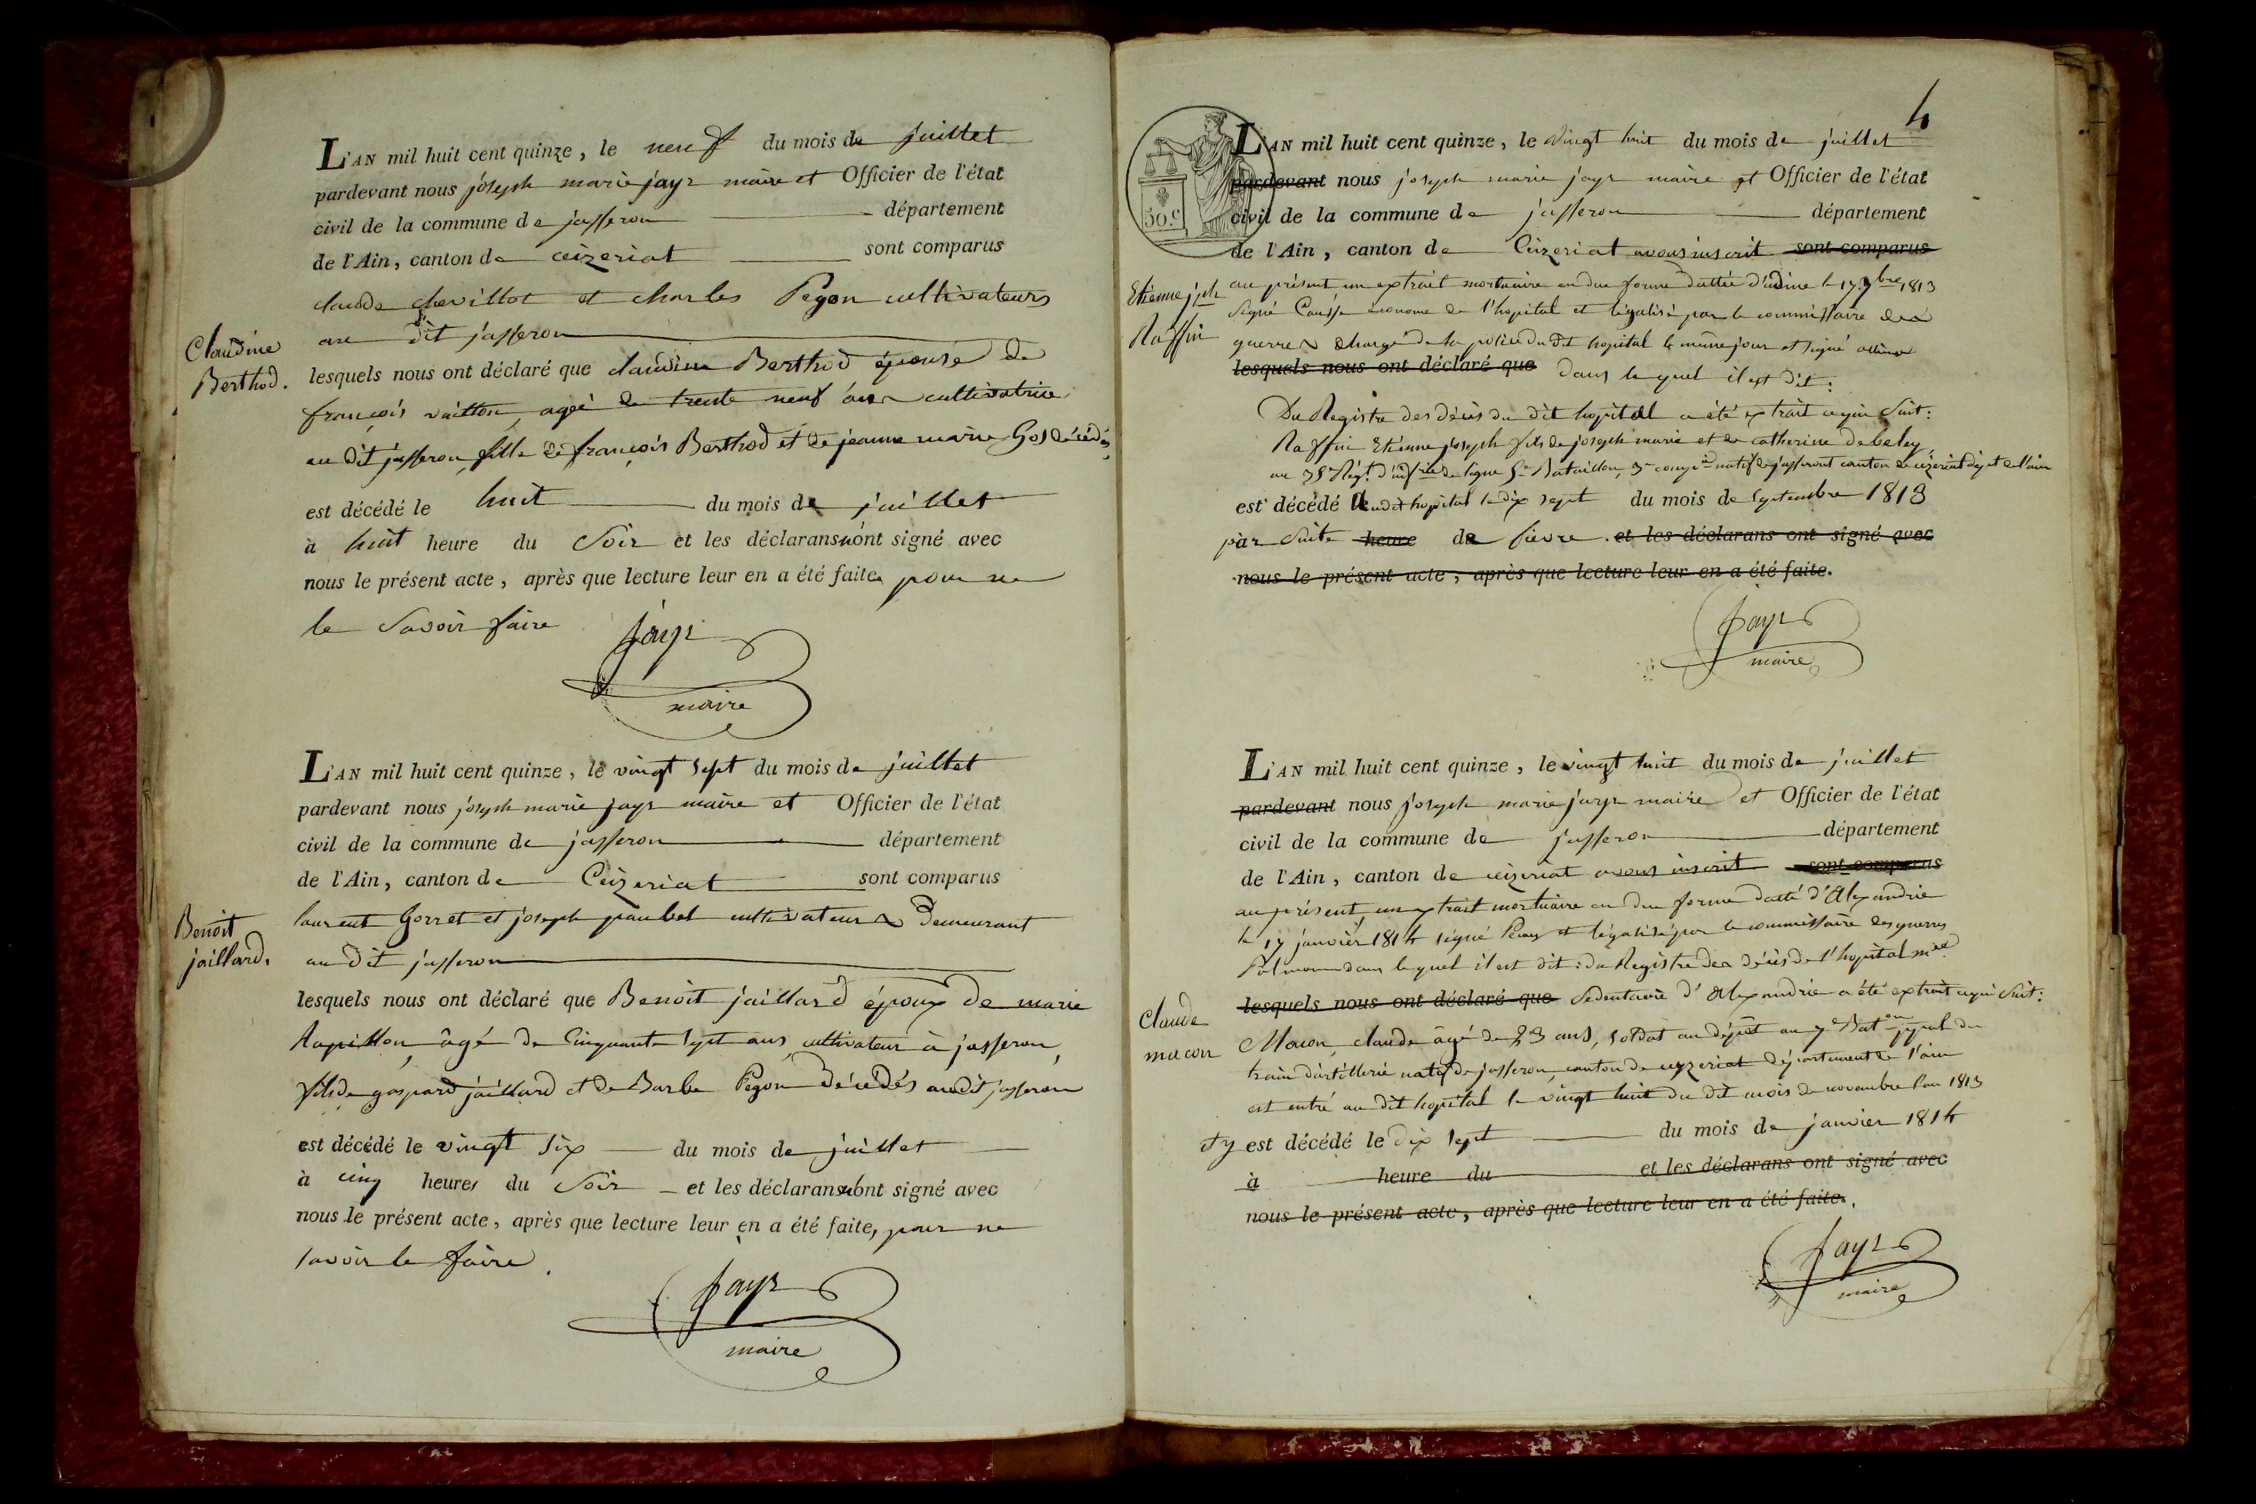 L'AN mil huit cent quinze, le neuf du mois de juillet
pardevant nous joseph marie jayr maire et Officier de l'état
civil de la commune de jasseron département
de l'Ain, canton de ceizeriat sont comparus
claude chevillot et charles Pegon cultivateurs
au dit jasseron
Claudine
Berthod.
lesquels nous ont déclaré que claudine Berthod épouse de
françois vaillon, agée de trente neuf ans cultivatrice
au dit jasseron, fille de françois Berthod et de jeanne marie Gos décédés,
est décédé le huit du mois de juillet
à huit heure du Soir et les déclarans n'ont signé avec
nous le présent acte, après que lecture leur en a été faite pour ne
le Savoir faire
jayr
maire
L'AN mil huit cent quinze, le vingt sept du mois de juillet
pardevant nous joseph marie jayr maire et Officier de l'état
civil de la commune de jasseron département
de l'Ain, canton de Ceizeriat sont comparus
Benoit
jaillard.
laurent Gorret et joseph paubel cultivateurs Demeurant
au dit jasseron
lesquels nous ont déclaré que Benoit jaillard époux de marie
âgé de Cinquante sept ans, cultivateur à jasseron,
fils de gaspard jaillard et de Barbe Pegon décédés audit jasseron
est décédé le vingt six du mois de juillet
à cinq heures du Soir et les déclarans n'ont signé avec
nous le présent acte, après que lecture leur en a été faite, pour ne
savoir le faire.
jayr
maire
4
50 c
L'AN mil huit cent quinze, le vingt huit du mois de juillet
pardevant nous joseph marie jayr maire et Officier de l'état
civil de la commune de jasseron département
de l'Ain, canton de Ceizeriat avons inscrit sont comparus
Etienne jph
Raffin
au présent un extrait mortuaire en due forme dattée d'udine le 17 7bre 1813
Signé économe de l'hopital et légalisé par le commissaire des
guerres chargé de la police du dit hopital le même jour et signé
lesquels nous ont déclaré que dans lequel il est dit:
Du Registre des décès du dit hopital a été extrait ce qui Suit:
Raffin Etienne joseph fils de joseph marie et de catherine debeley
au 35e Régt. d'infrie de ligne 5e Bataillon, 3e compie natif de jasseront canton de cézériat dept de l'ain
est décédé audit hopital le dix sept du mois de Septembre 1813
par Suite heure de fièvre. et les déclarans ont signé avec
nous le présent acte, après que lecture leur en a été faite.
jayr
maire
L'AN mil huit cent quinze, le vingt huit du mois de juillet
pardevant nous joseph marie jayr maire et Officier de l'état
civil de la commune de jasseron département
de l'Ain, canton de ceizeriat avons inscrit sont comparus
au présent un extrait mortuaire en due forme daté d'Alexandrie
le 17 janvier 1814 signé et légalisé par le commissaire des guerres
dans lequel il est dit: du Registre des décès de l'hopital mre
lesquels nous ont déclaré que Sedentaire d'Alexandrie a été extrait ce qui Suit:
Claude
macon
Macon, claude âgé de 23 ans, soldat au dépôt au 7e Baton ppal du
train d'artillerie natif de jasseron, canton de ceyzeriat département de l'ain
est entré au dit hopital le vingt huit du dit mois de novembre l'an 1813
et y est décédé le dix sept du mois de janvier 1814
à heure du et les déclarans ont signé avec
nous le présent acte, après que lecture leur en a été faite.
jayr
maire